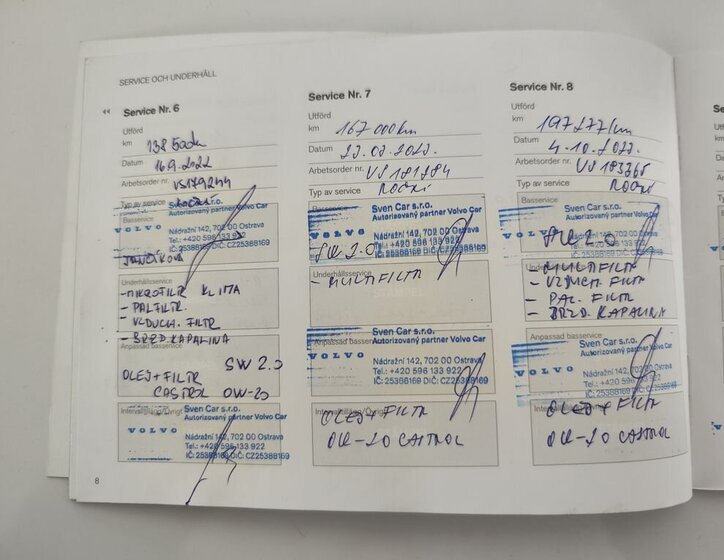 SERVICE OCH UNDERHÅLL
Service Nr. 6
Utförd
km 138 500km
Datum 16.9.2022
Arbetsorder nr. VS179244
Typ av service ROČNÍ
Basservice
Sven Car s.r.o.
Autorizovaný partner Volvo Car
VOLVO
Nádražní 142, 702 00 Ostrava
Tel.: +420 596 133 922
IČ: 25388169 DIČ: CZ25388169
Underhållsservice
- MIKROFILTR KLIMA
- PAL FILTR.
- VZDUCH. FILTR
- BRZD KAPALINA
Anpassad basservice
SW 2.0
OLEJ + FILTR
CASTROL OW-20
Sven Car s.r.o.
Autorizovaný partner Volvo Car
VOLVO
Nádražní 142, 702 00 Ostrava
Tel.: +420 596 133 922
IČ: 25388169 DIČ: CZ25388169
8
Service Nr. 7
Utförd
km 167 000km
Datum
Arbetsorder nr. VS181784
Typ av service ROČNÍ
Basservice
Sven Car s.r.o.
Autorizovaný partner Volvo Car
VOLVO
Nádražní 142, 702 00 Ostrava
Tel.: +420 596 133 922
IČ: 25388169 DIČ: CZ25388169
SW 2.0
Underhållsservice
- MULTIFILTR
Anpassad basservice
Sven Car s.r.o.
Autorizovaný partner Volvo Car
VOLVO
Nádražní 142, 702 00 Ostrava
Tel.: +420 596 133 922
IČ: 25388169 DIČ: CZ25388169
OLEJ + FILTR
OW-20 CASTROL
Service Nr. 8
Utförd
km 197277km
Datum 4.10.2023.
Arbetsorder nr. VS183765
Typ av service ROČNÍ
Basservice
Sven Car s.r.o.
Autorizovaný partner Volvo Car
VOLVO
Nádražní 142, 702 00 Ostrava
Tel.: +420 596 133 922
IČ: 25388169 DIČ: CZ25388169
SW 2.0
Underhållsservice
- MULTIFILTR
- VZDUCH. FILTR
- PAL. FILTR
- BRZD. KAPALINA
Anpassad basservice
Sven Car s.r.o.
Autorizovaný partner Volvo Car
VOLVO
Nádražní 142, 702 00 Ostrava
Tel.: +420 596 133 922
IČ: 25388169 DIČ: CZ25388169
OLEJ + FILTR
OW-20 CASTROL